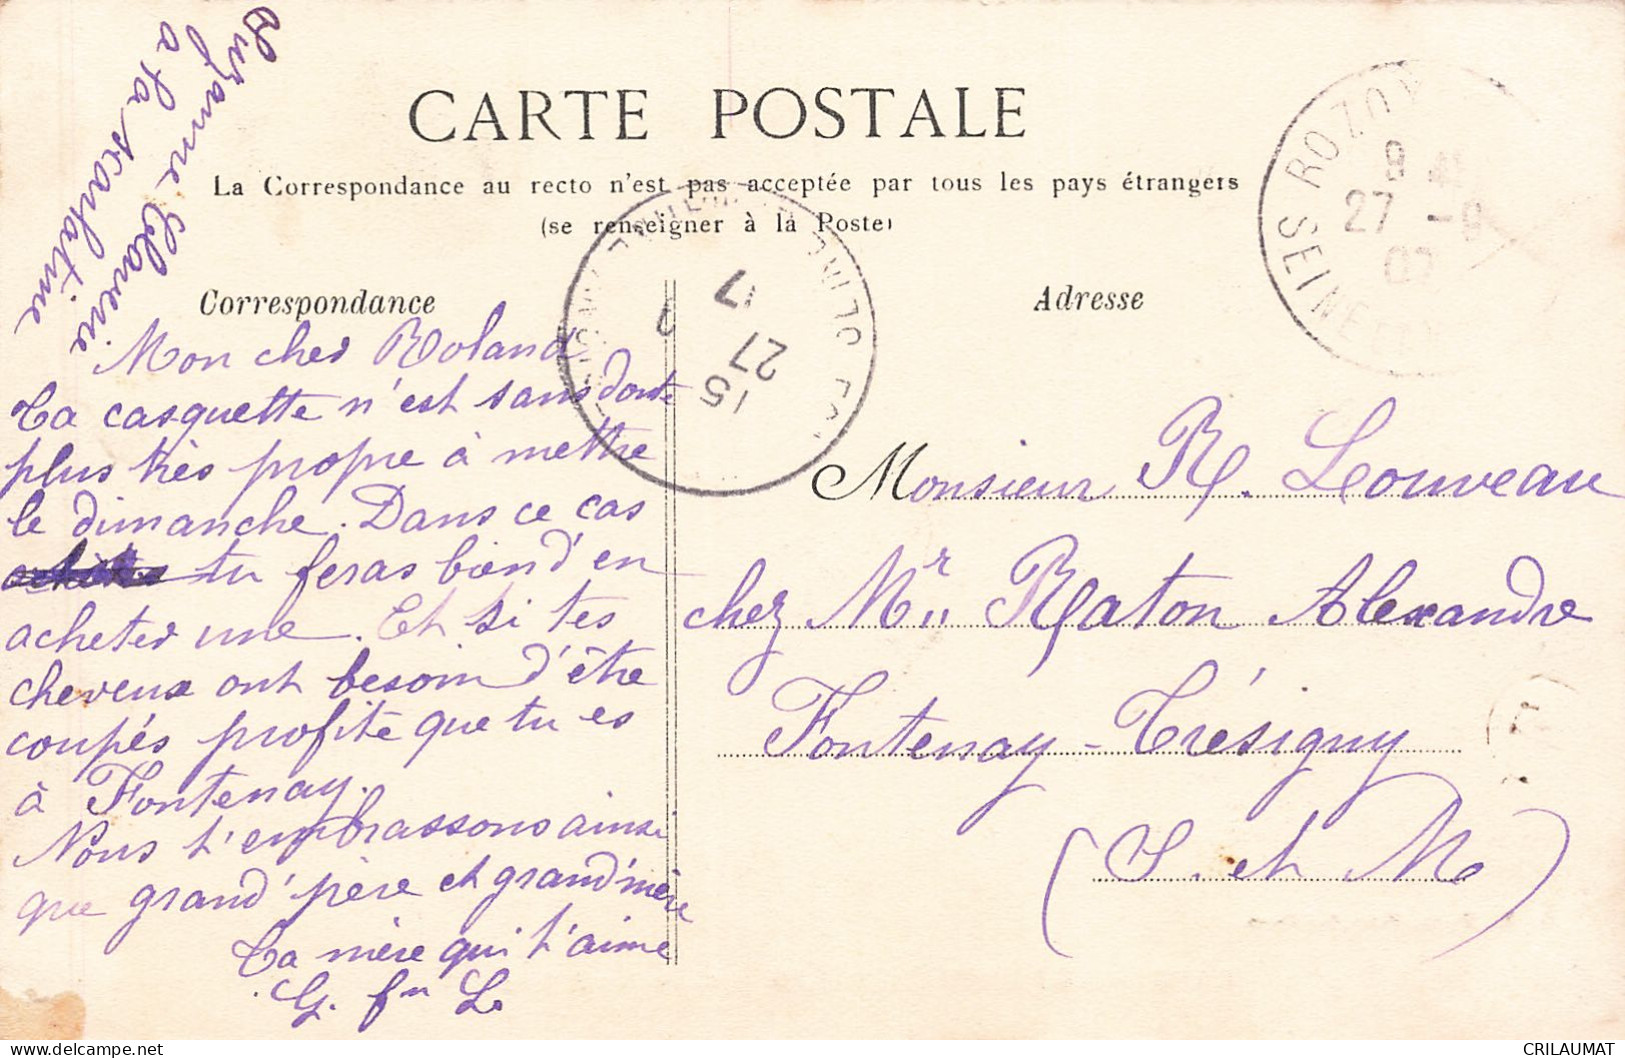 CARTE POSTALE
La Correspondance au recto n'est pas acceptée par tous les pays étrangers
(se renseigner à la Poste)
Correspondance
Adresse
Suzanne Claverie
a la scarlatine
Mon cher Roland
Ta casquette n'est sans doute
plus très propre à mettre
le dimanche. Dans ce cas
tu feras bien d'en
acheter une. Et si tes
cheveux ont besoin d'être
coupés profite que tu es
à Fontenay.
Nous t'embrassons ainsi
que grand'père et grand'mère
Ta mère qui t'aime
G. fm L.
Monsieur R. Louveau
chez Mr. Raton Alexandre
Fontenay-Trésigny
(S. et M)
ROZOY
27 -9
SEINE
15
27
17
CRILAUMAT